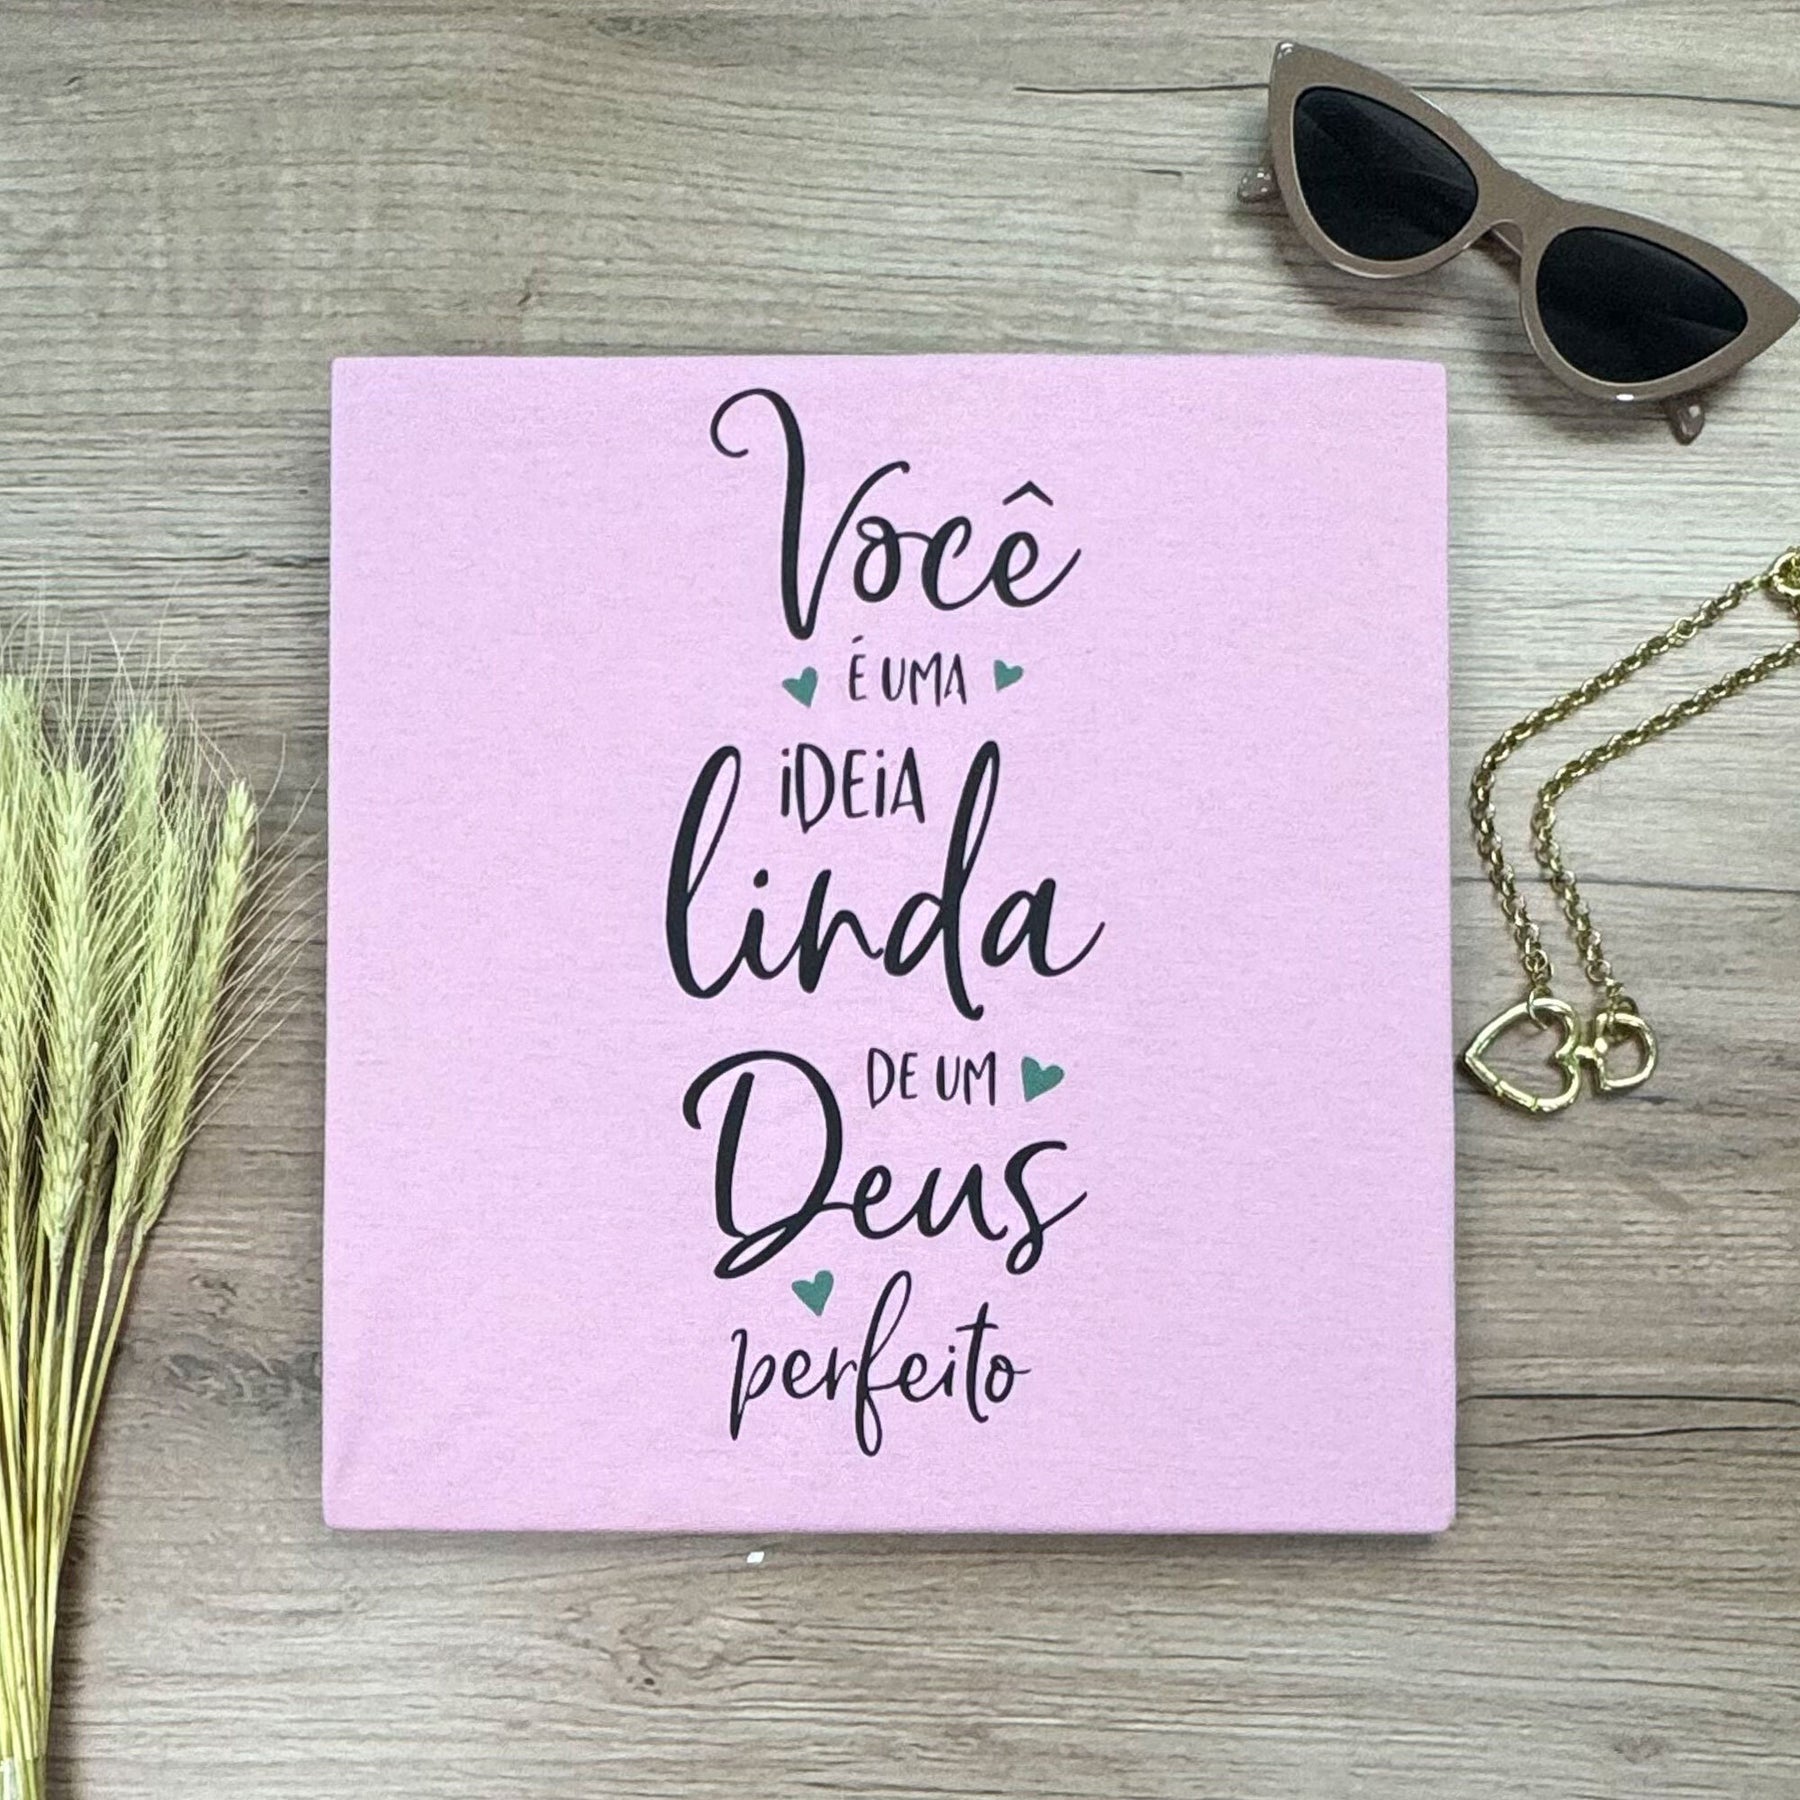 Você
É UMA
iDEiA
linda
DE UM
Deus
perfeito